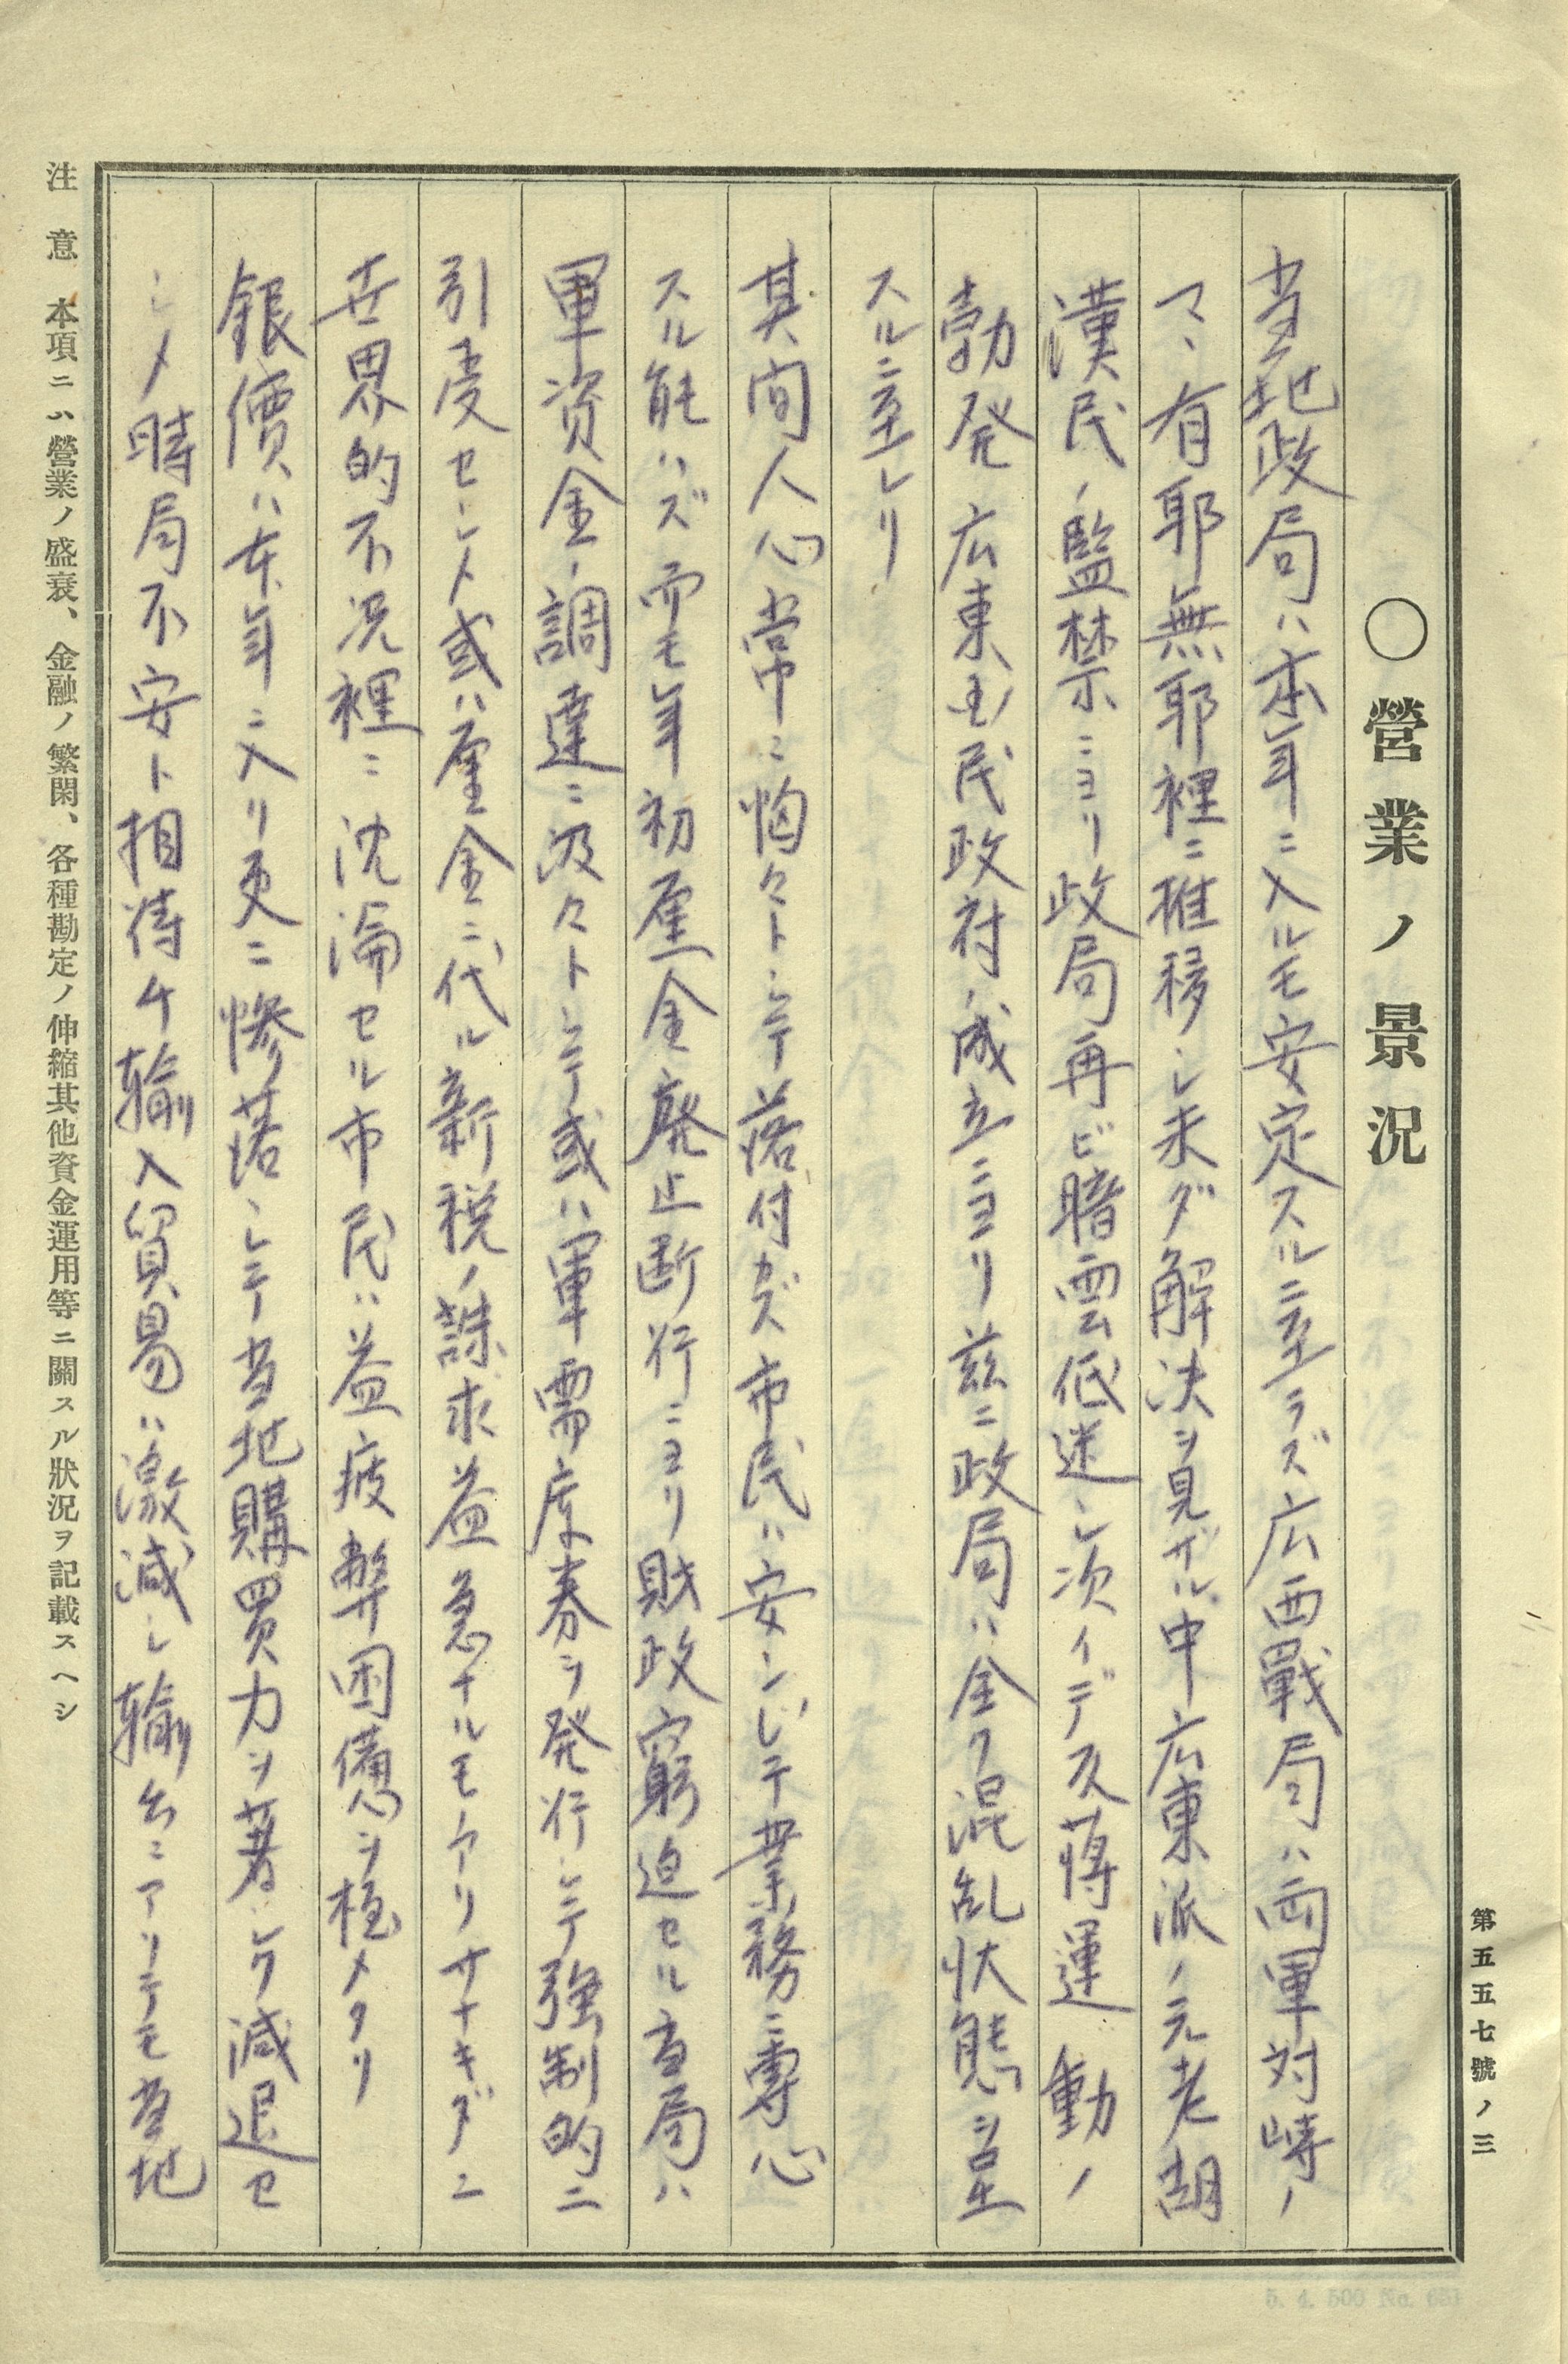 第五五七號ノ三
〇營業ノ景況
当地政局ハ本年ニ入ルモ安定スルニ至ラズ広西戰局ハ両軍対峙ノ
マヽ有耶無耶裡ニ推移シ未ダ解決ヲ見ザル中広東派ノ元老胡
漢民ノ監禁ニヨリ政局再ビ暗雲低迷シ次イデ反蒋運動ノ
勃発広東国民政府ノ成立ニヨリ茲ニ政局ハ全ク混乱状態ヲ呈
スルニ至レリ
其間人心常ニ恟々トシテ落付カズ市民ハ安ンジテ業務ニ専心
スル能ハズ而モ年初厘金廃止断行ニヨリ財政窮迫セル当局ハ
軍資金ノ調達ニ汲々トシテ或ハ軍需庫券ヲ発行シテ強制的ニ
引受セシメ或ハ厘金ニ代ル新税ノ誅求益急ナルモノアリサナキダニ
世界的不況裡ニ沈淪セル市民ハ益疲弊困憊ヲ極メタリ
銀價ハ本年ニ入リ更ニ惨落シテ当地購買力ヲ著シク減退セ
シメ時局不安ト相待チ輸入貿易ハ激減シ輸出ニアリテモ当地
注意 本項ニハ營業ノ盛衰、金融ノ繁閑、各種勘定ノ伸縮其他資金運用等ニ關スル狀況ヲ記載スヘシ
5. 4. 500 No. 651